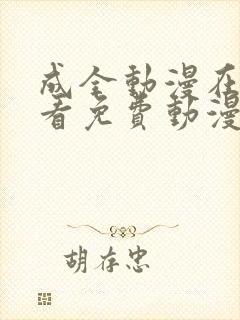 成全動漫在
看免費動漫
胡存忠